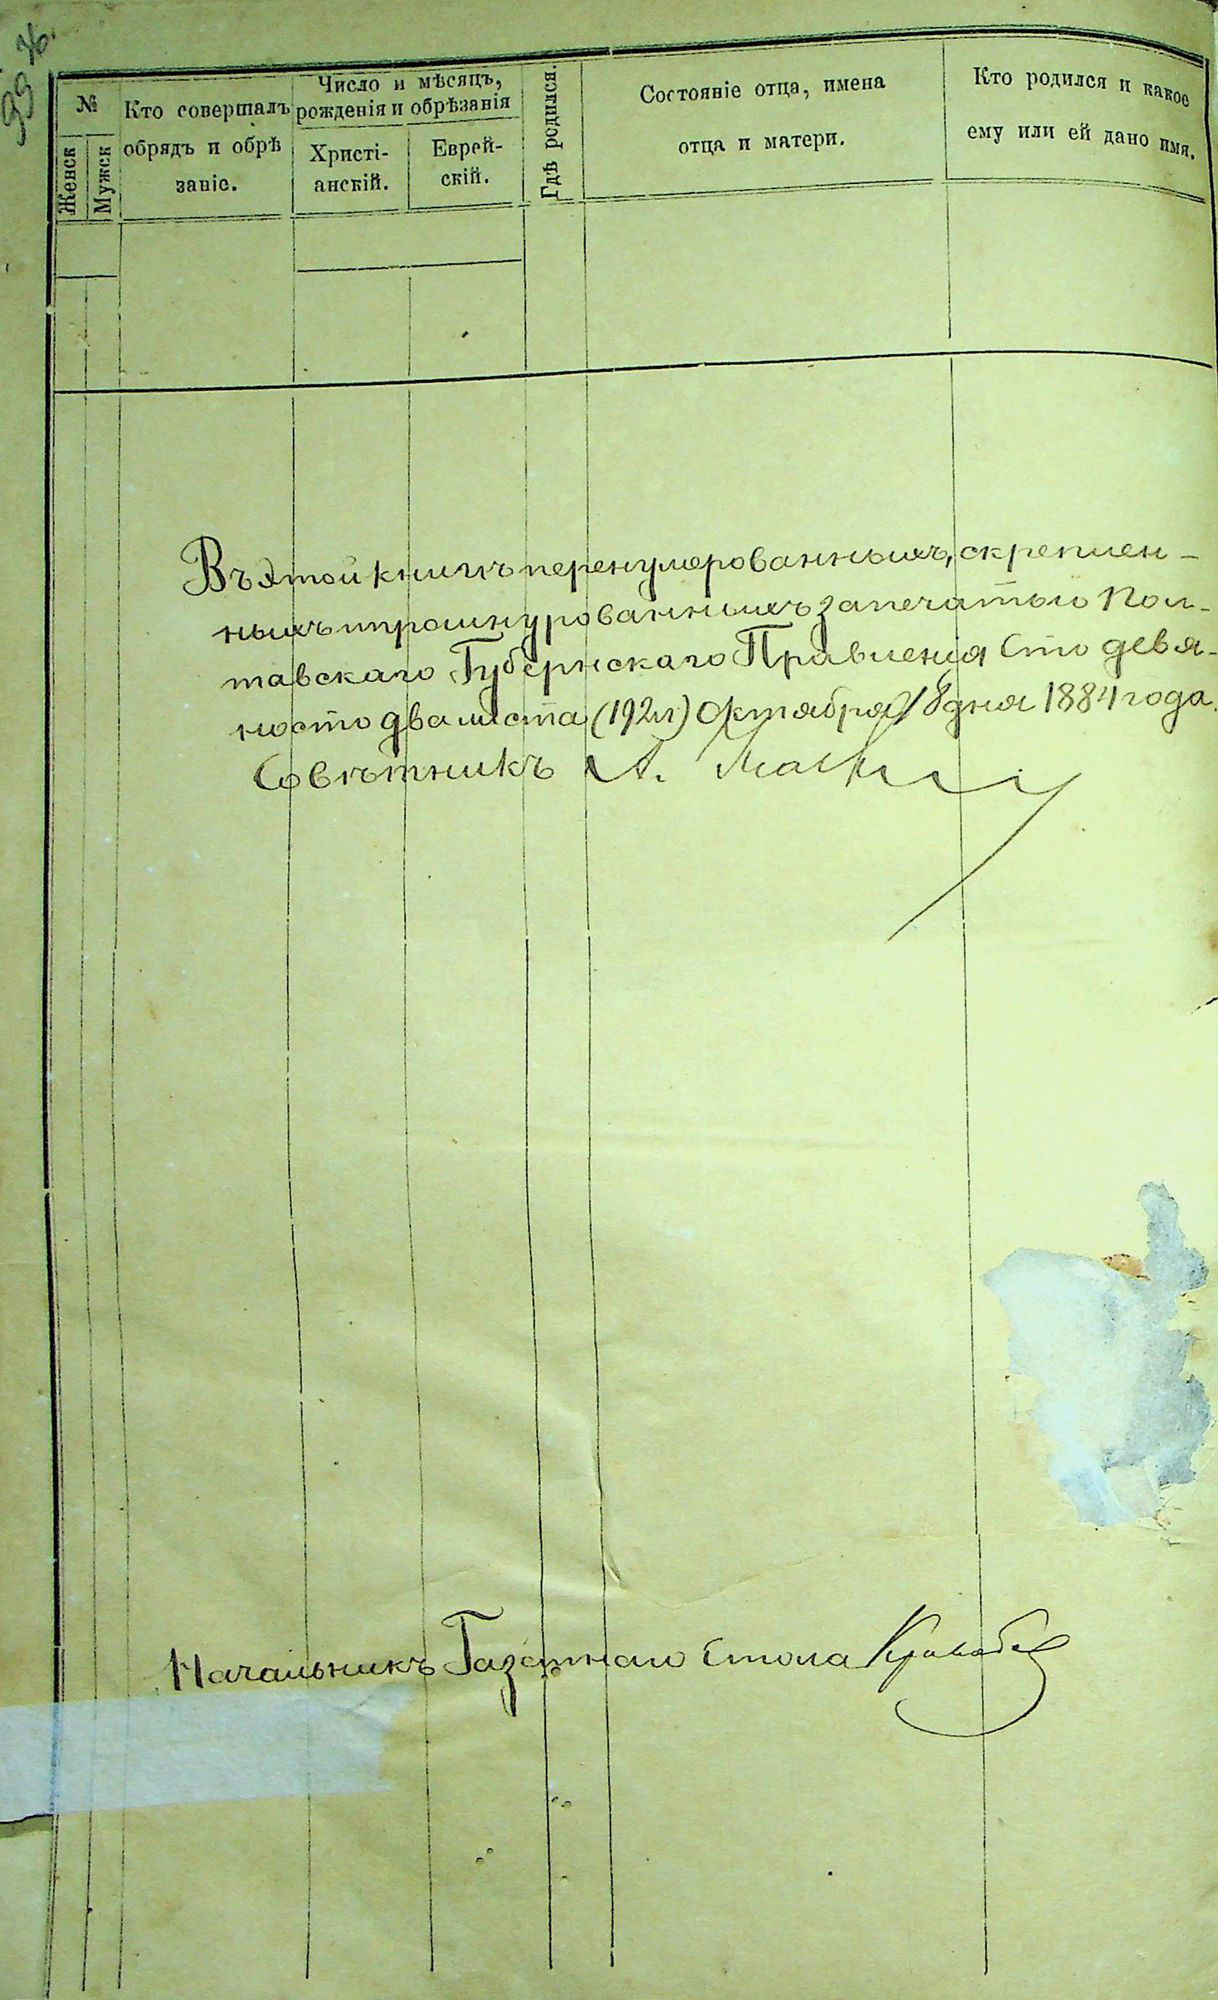 №
Женск
Мужск
Кто совершалъ
обрядъ и обрѣ
заніе.
Число и мѣсяцъ,
рожденія и обрѣзанія
Христі-
анскій.
Еврей-
скій.
Гдѣ родился.
Состояніе отца, имена
отца и матери.
Кто родился и какое
ему или ей дано имя.
Въ этой книгѣ перенумерованныхъ, скреплен-
ныхъ прошнурованныхъ запечатью Пол-
тавскаго Губернскаго Правленія Сто девя-
носто два листа (192л) Октября 18 дня 1884 года.
Совѣтникъ А.
Начальникъ Газетнаго Стола